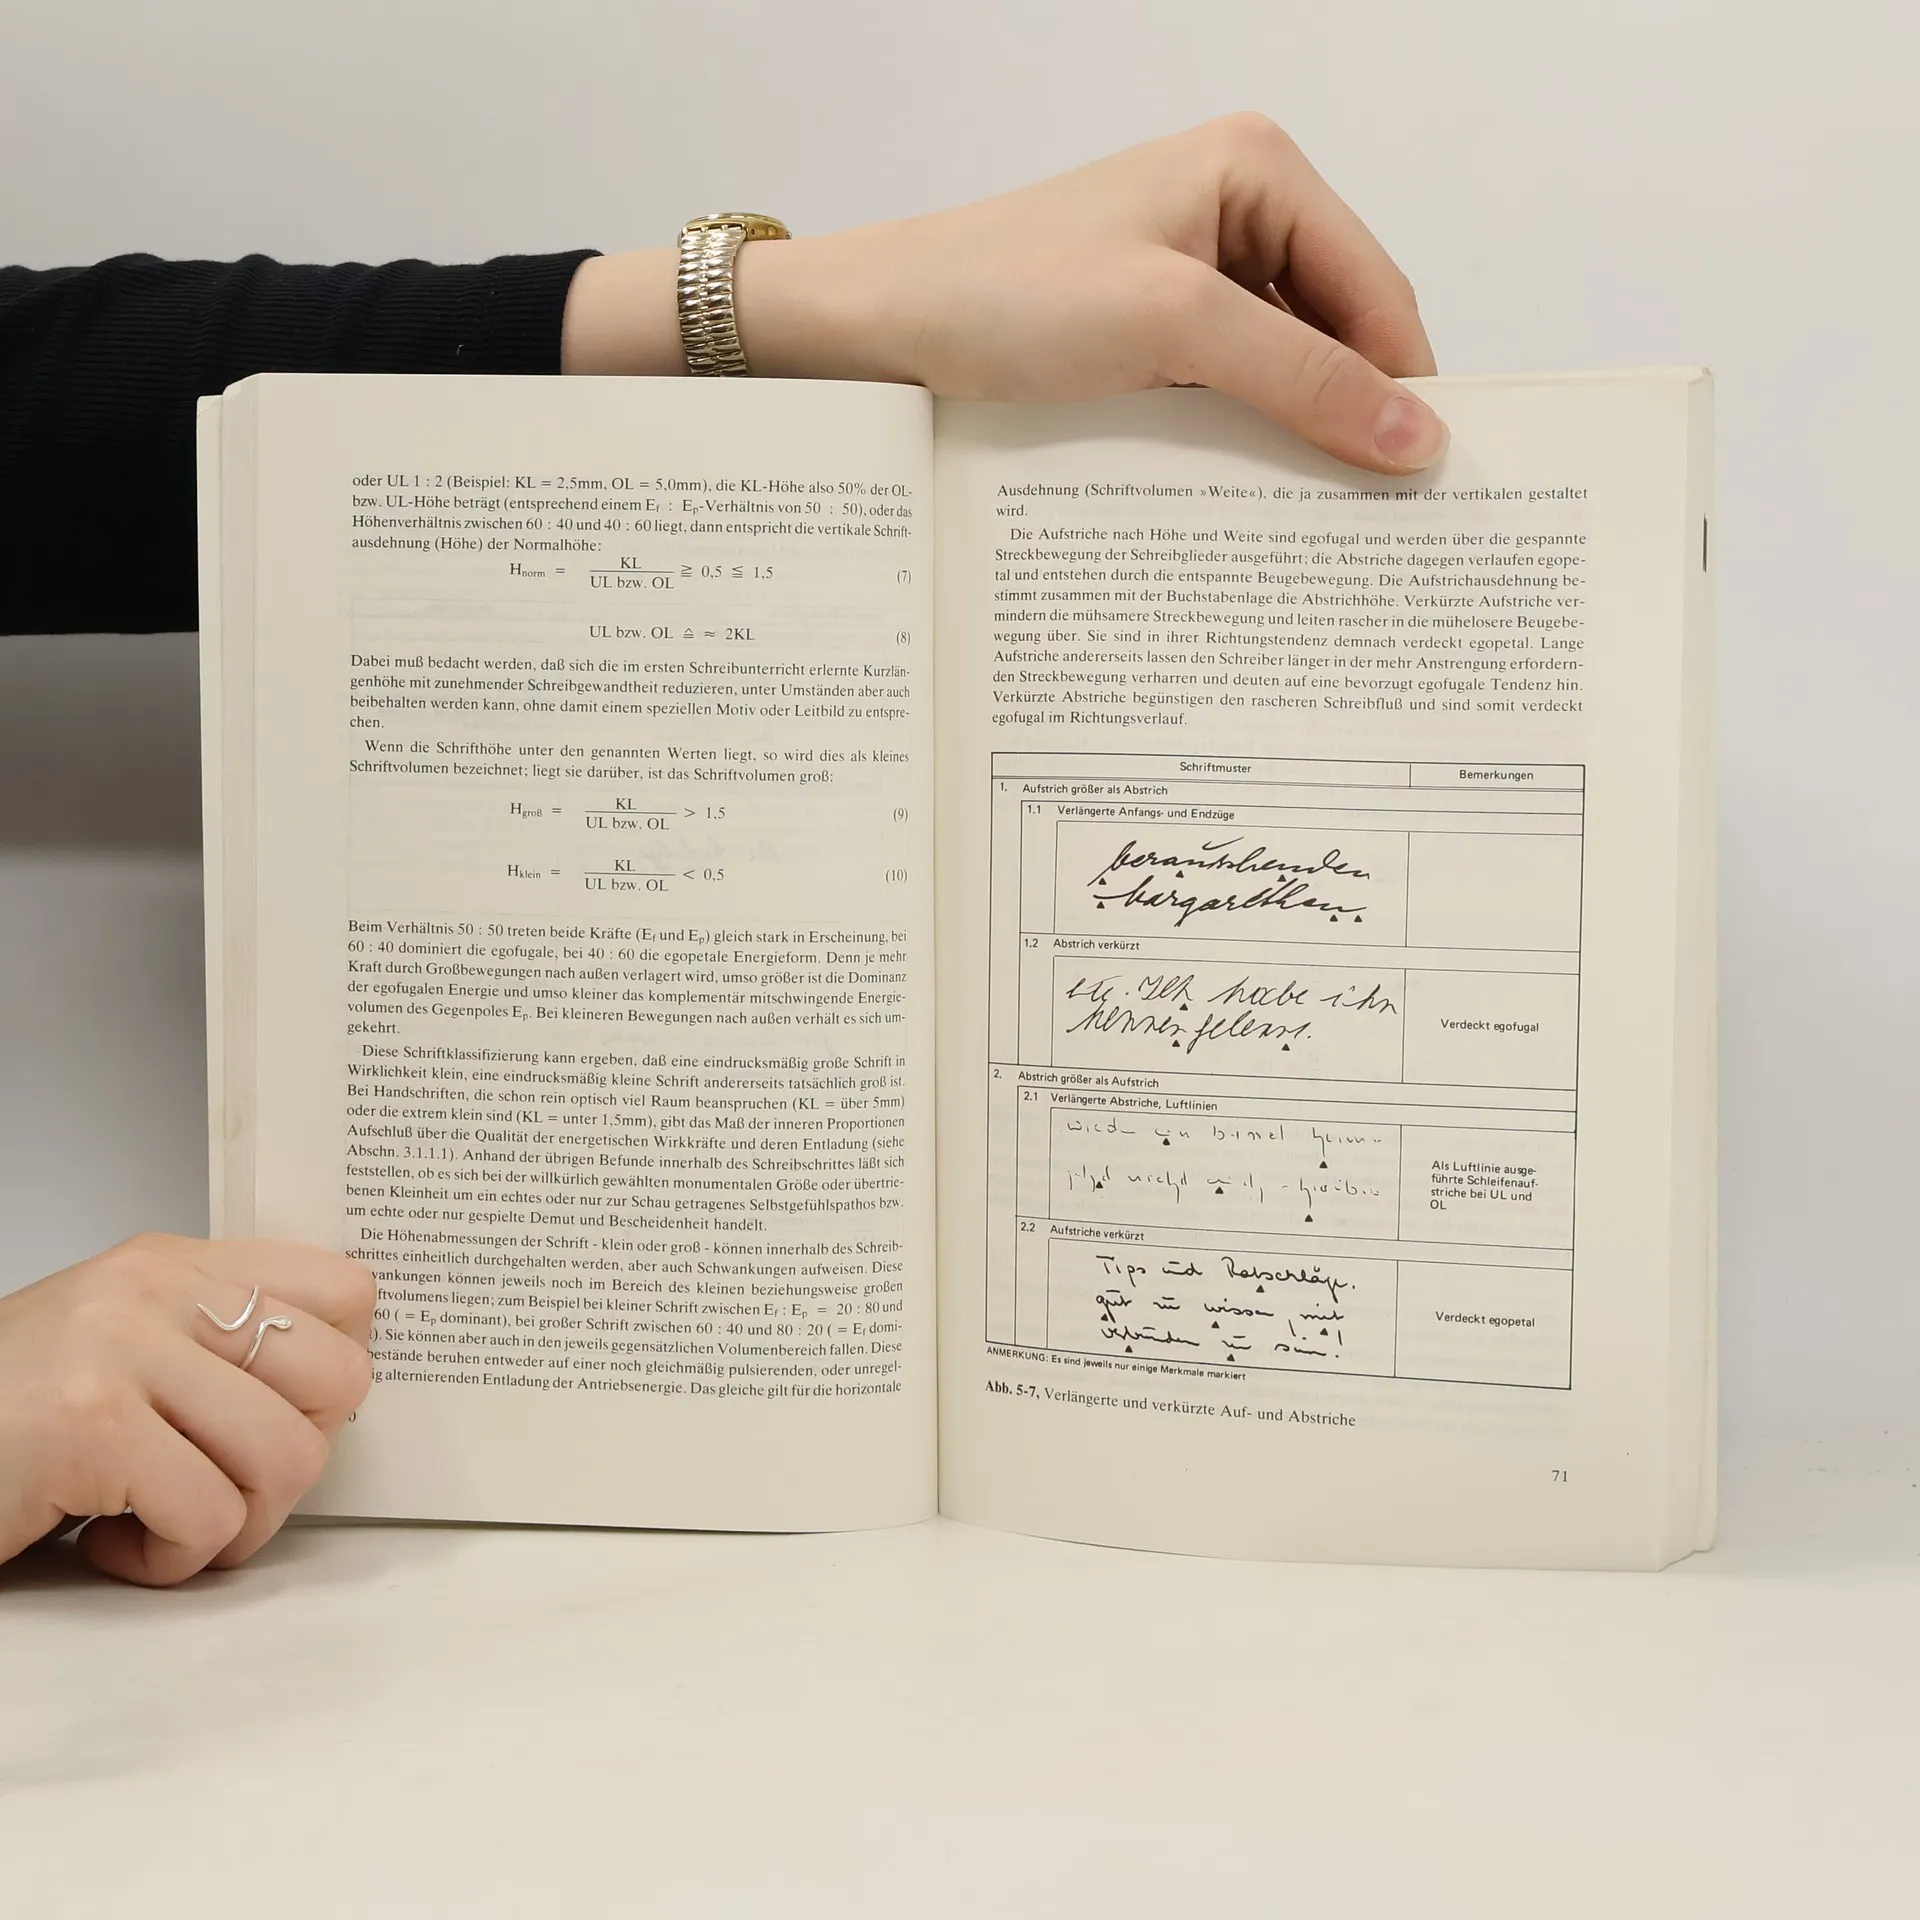 oder UL 1 : 2 (Beispiel: KL = 2,5mm, OL = 5,0mm), die KL-Höhe also 50% der OL-
bzw. UL-Höhe beträgt (entsprechend einem Ef : Ep-Verhältnis von 50 : 50), oder das
Höhenverhältnis zwischen 60 : 40 und 40 : 60 liegt, dann entspricht die vertikale Schrift-
ausdehnung (Höhe) der Normalhöhe:
Hnorm = KL / UL bzw. OL ≧ 0,5 ≦ 1,5 (7)
UL bzw. OL ≙ ≈ 2KL (8)
Dabei muß bedacht werden, daß sich die im ersten Schreibunterricht erlernte Kurzlän-
genhöhe mit zunehmender Schreibgewandtheit reduzieren, unter Umständen aber auch
beibehalten werden kann, ohne damit einem speziellen Motiv oder Leitbild zu entspre-
chen.
Wenn die Schrifthöhe unter den genannten Werten liegt, so wird dies als kleines
Schriftvolumen bezeichnet; liegt sie darüber, ist das Schriftvolumen groß:
Hgroß = KL / UL bzw. OL > 1,5 (9)
Hklein = KL / UL bzw. OL < 0,5 (10)
Beim Verhältnis 50 : 50 treten beide Kräfte (Ef und Ep) gleich stark in Erscheinung, bei
60 : 40 dominiert die egofugale, bei 40 : 60 die egopetale Energieform. Denn je mehr
Kraft durch Großbewegungen nach außen verlagert wird, umso größer ist die Dominanz
der egofugalen Energie und umso kleiner das komplementär mitschwingende Energie-
volumen des Gegenpoles Ep. Bei kleineren Bewegungen nach außen verhält es sich um-
gekehrt.
Diese Schriftklassifizierung kann ergeben, daß eine eindrucksmäßig große Schrift in
Wirklichkeit klein, eine eindrucksmäßig kleine Schrift andererseits tatsächlich groß ist.
Bei Handschriften, die schon rein optisch viel Raum beanspruchen (KL = über 5mm)
oder die extrem klein sind (KL = unter 1,5mm), gibt das Maß der inneren Proportionen
Aufschluß über die Qualität der energetischen Wirkkräfte und deren Entladung (siehe
Abschn. 3.1.1.1). Anhand der übrigen Befunde innerhalb des Schreibschrittes läßt sich
feststellen, ob es sich bei der willkürlich gewählten monumentalen Größe oder übertrie-
benen Kleinheit um ein echtes oder nur zur Schau getragenes Selbstgefühlspathos bzw.
um echte oder nur gespielte Demut und Bescheidenheit handelt.
Die Höhenabmessungen der Schrift - klein oder groß - können innerhalb des Schreib-
schrittes einheitlich durchgehalten werden, aber auch Schwankungen aufweisen. Diese
wankungen können jeweils noch im Bereich des kleinen beziehungsweise großen
ftvolumens liegen; zum Beispiel bei kleiner Schrift zwischen Ef : Ep = 20 : 80 und
60 ( = Ep dominant), bei großer Schrift zwischen 60 : 40 und 80 : 20 ( = Ef domi-
). Sie können aber auch in den jeweils gegensätzlichen Volumenbereich fallen. Diese
bestände beruhen entweder auf einer noch gleichmäßig pulsierenden, oder unregel-
ig alternierenden Entladung der Antriebsenergie. Das gleiche gilt für die horizontale
Ausdehnung (Schriftvolumen »Weite«), die ja zusammen mit der vertikalen gestaltet
wird.
Die Aufstriche nach Höhe und Weite sind egofugal und werden über die gespannte
Streckbewegung der Schreibglieder ausgeführt; die Abstriche dagegen verlaufen egope-
tal und entstehen durch die entspannte Beugebewegung. Die Aufstrichausdehnung be-
stimmt zusammen mit der Buchstabenlage die Abstrichhöhe. Verkürzte Aufstriche ver-
mindern die mühsamere Streckbewegung und leiten rascher in die mühelosere Beugebe-
wegung über. Sie sind in ihrer Richtungstendenz demnach verdeckt egopetal. Lange
Aufstriche andererseits lassen den Schreiber länger in der mehr Anstrengung erfordern-
den Streckbewegung verharren und deuten auf eine bevorzugt egofugale Tendenz hin.
Verkürzte Abstriche begünstigen den rascheren Schreibfluß und sind somit verdeckt
egofugal im Richtungsverlauf.
Schriftmuster Bemerkungen
1. Aufstrich größer als Abstrich
1.1 Verlängerte Anfangs- und Endzüge
berauschenden
1.2 Abstrich verkürzt
etc. Ich habe ihn
kennen gelernt.
Verdeckt egofugal
2. Abstrich größer als Aufstrich
2.1 Verlängerte Abstriche, Luftlinien
wieder ein bissel
nicht
Als Luftlinie ausge-
führte Schleifenauf-
striche bei UL und
OL
2.2 Aufstriche verkürzt
Tips und Ratschläge.
gut zu wissen, mit
verbunden zu sein!
Verdeckt egopetal
ANMERKUNG: Es sind jeweils nur einige Merkmale markiert
Abb. 5-7, Verlängerte und verkürzte Auf- und Abstriche
71